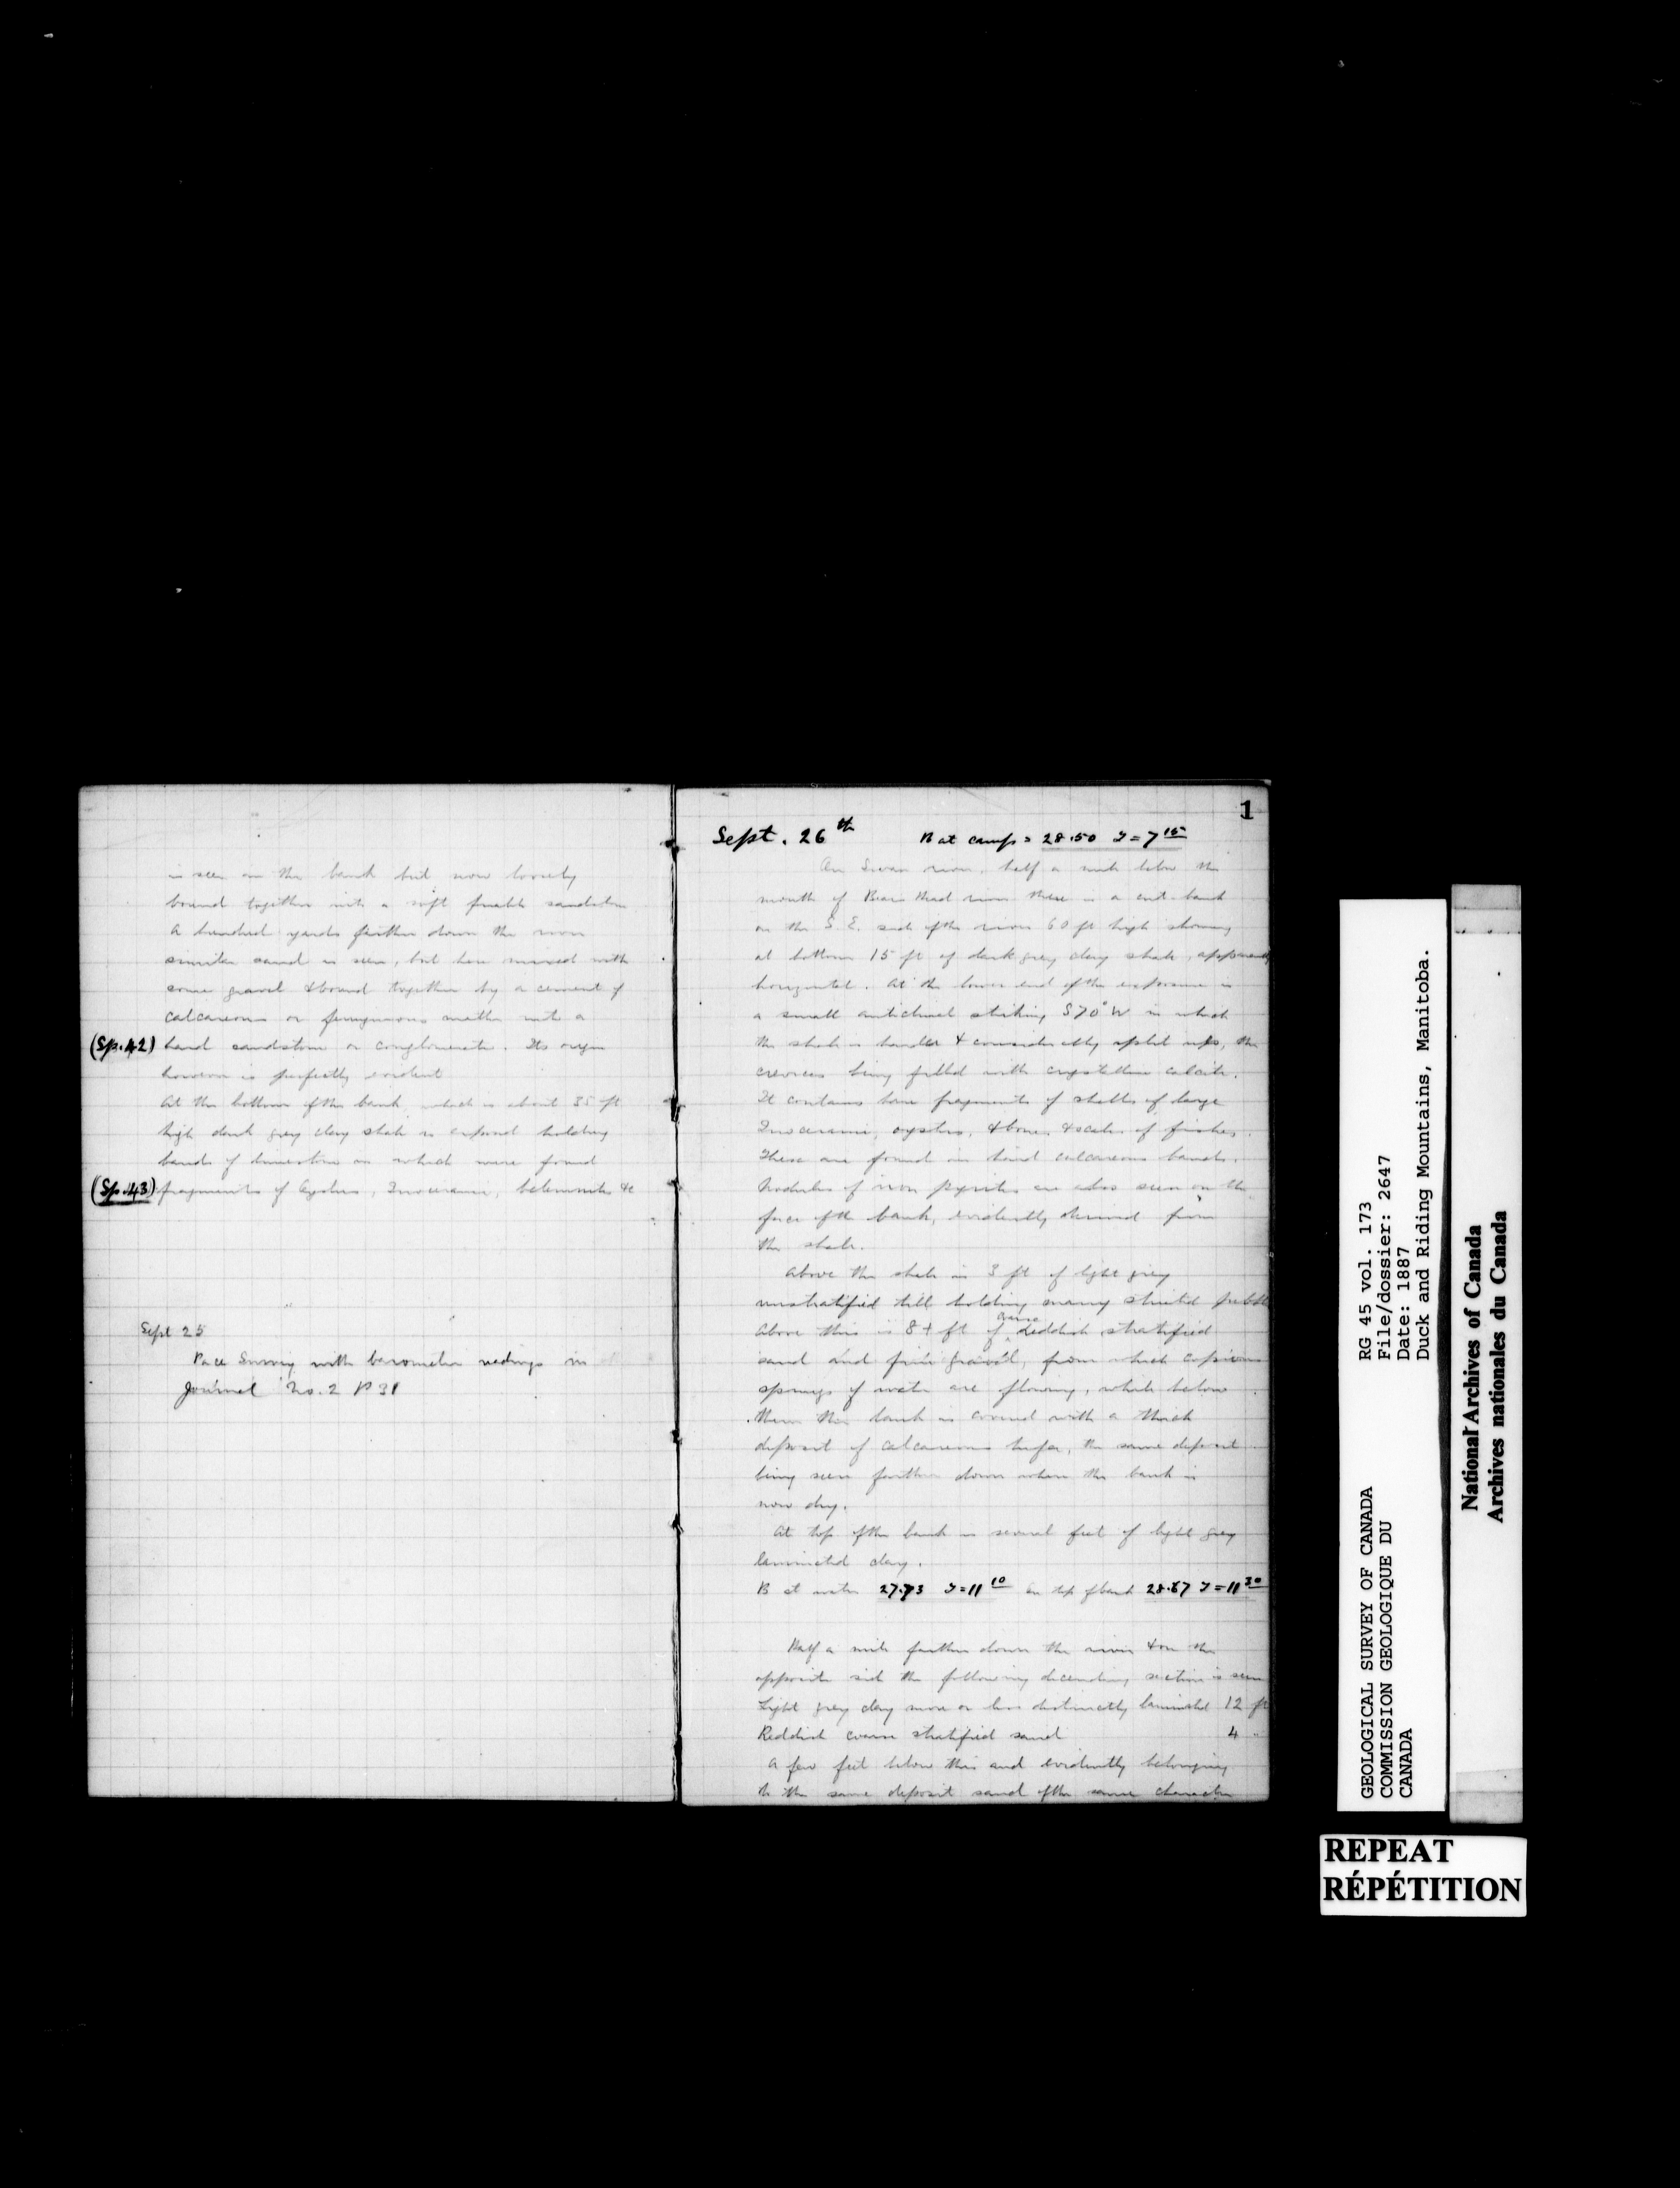 is seen on the bank but now loosely
bound together into a soft friable sandstone
A hundred yards further down the river
similar sand is seen, but here mixed with
some gravel & bound together by a cement of
calcareous or ferruginous matter into a
(Sp. 42) hard sandstone or conglomerate. Its origin
however is perfectly evident
At the bottom of the bank which is about 35 ft
high dark grey clay shale is exposed holding
bands of limestone in which were found
(Sp. 43) fragments of Oysters, Inocerami, belemnites &c
Sept 25
Pace Survey with barometer readings in
Journal No. 2 P 31
1
Sept. 26th B at camp = 28.50 T = 7 15
On Swan river, half a mile below the
mouth of Bear Head river there is a cut bank
on the S. E. side of the river 60 ft high showing
at bottom 15 ft of dark grey clay shale, apparently
horizontal. At the lower end of the exposure is
a small anticlinal striking S70°W in which
the shale is harder & considerably split up, the
crevices being filled with crystalline calcite.
It contains here fragments of shells of large
Inocerami, oysters, & bones & scales of fishes.
These are found in hard calcareous bands.
Nodules of iron pyrites are also seen on the
face of the bank, evidently derived from
the shale.
Above the shale is 3 ft of light grey
unstratified till holding many striated pebbles
Above this is 8+ ft of coarse reddish stratified
sand and fine gravel, from which copious
springs of water are flowing, while below
them the bank is covered with a thick
deposit of calcareous tufa, the same deposit
being seen further down where the bank is
now dry.
At top of the bank is several feet of light grey
laminated clay.
B at water 27.73 T = 11 10 on top of bank 28.67 T = 11 30
Half a mile further down the river & on the
opposite side the following descending section is seen
Light grey clay more or less distinctly laminated 12 ft
Reddish coarse stratified sand 4 "
A few feet below this and evidently belonging
to the same deposit sand of the same character
RG 45 vol. 173
File/dossier: 2647
Date: 1887
Duck and Riding Mountains, Manitoba.
GEOLOGICAL SURVEY OF CANADA
COMMISSION GEOLOGIQUE DU
CANADA
National Archives of Canada
Archives nationales du Canada
REPEAT
RÉPÉTITION